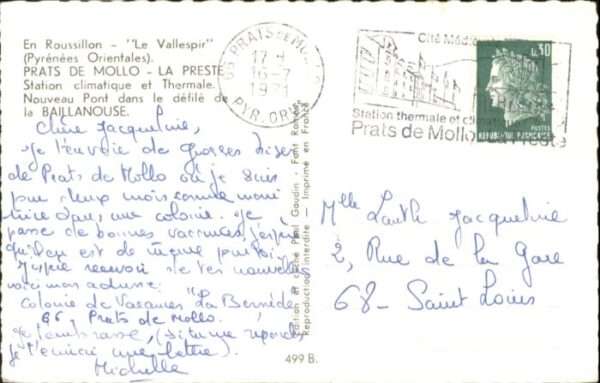 En Roussillon - "Le Vallespir"
(Pyrénées Orientales).
PRATS DE MOLLO - LA PRESTE
Station climatique et Thermale.
Nouveau Pont dans le défilé de
la BAILLANOUSE.
Chère Jacqueline,
Je t'envoie de
de Prats de Mollo où je suis
pour deux mois comme moni
trice dans une colonie. Je
passe de bonnes vacances, j'espère
qu'il en est de même pour toi.
J'espère recevoir de tes nouvelles
voici mon adresse:
Colonie de Vacances "La Bernède"
66 - Prats de Mollo.
Je t'embrasse, (si tu me réponds
je t'écrirai une lettre).
Michelle
Edition et cliché Paul Gaudin - Font Romeu
Reproduction interdite - Imprimé en France
499 B.
66 PRATS-DE-MOLLO
17 H
16-7
1971
PYR. ORLES
Cité Médiévale
Station thermale et climatique
Prats de Mollo La Preste
0,30
POSTES
REPUBLIQUE FRANÇAISE
Mlle Lauth Jacqueline
2, Rue de la Gare
68 - Saint Louis